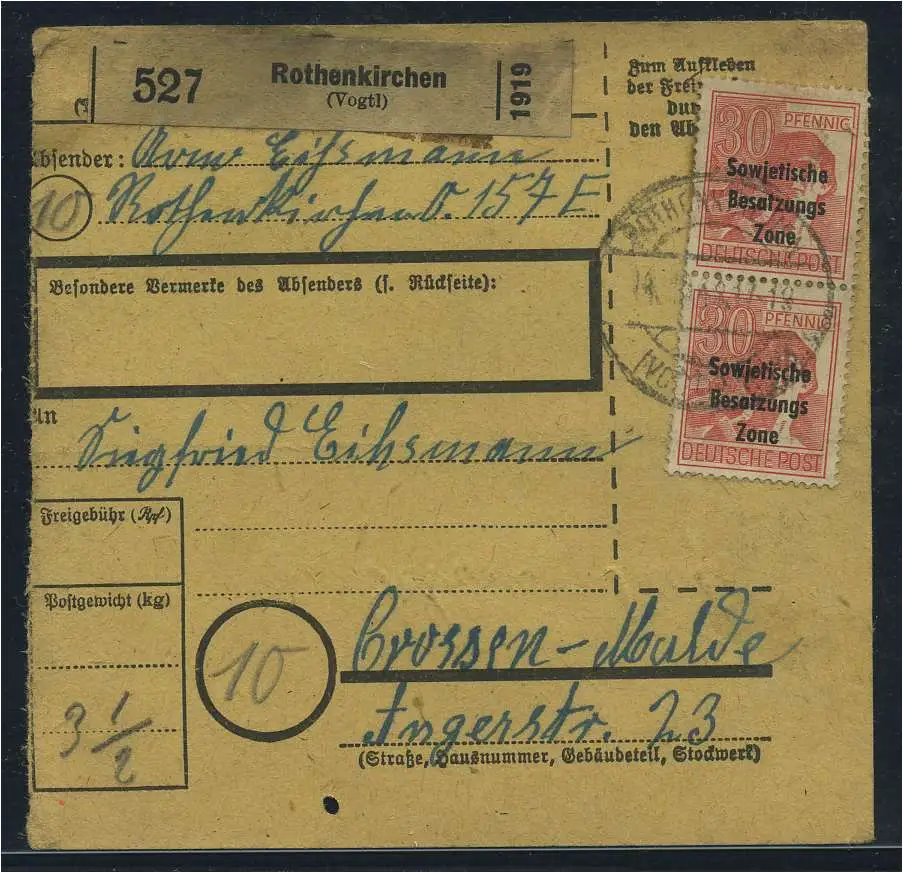 527
Rothenkirchen
(Vogtl)
1919
Zum Aufkleben
der
den
Absender: Eihsmann
10 Rothenkirchen O. 157 E
Besondere Vermerke des Absenders (s. Rückseite):
An
Siegfried Eihsmann
Freigebühr (Rpf)
Postgewicht (kg)
3 1/2
10
Crossen-Mulde
Angerstr. 23
(Straße, Hausnummer, Gebäudeteil, Stockwerk)
30 PFENNIG
Sowjetische
Besatzungs
Zone
DEUTSCHE POST
30 PFENNIG
Sowjetische
Besatzungs
Zone
DEUTSCHE POST